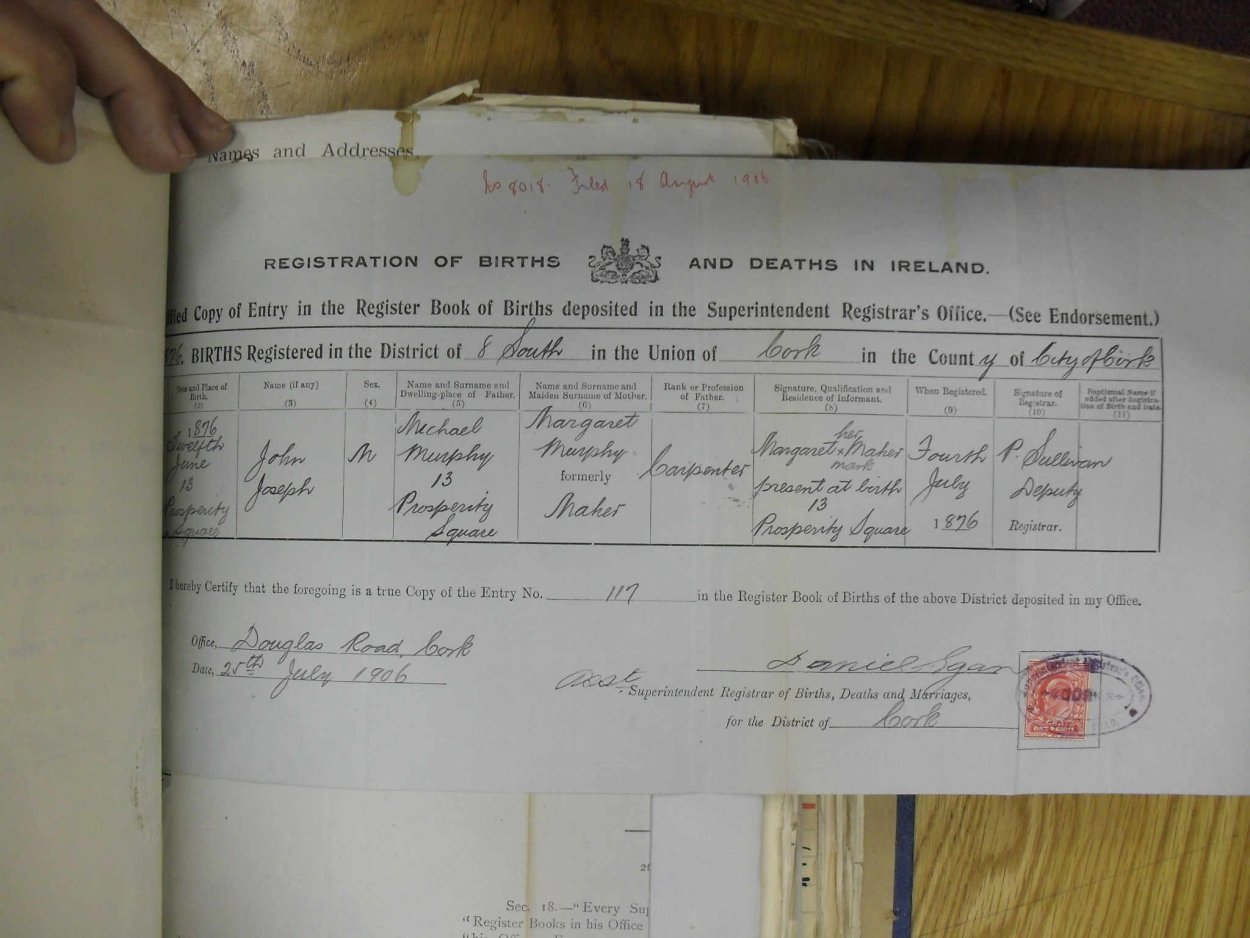 Names and Addresses
No 8018. Filed 18 August 1906
REGISTRATION OF BIRTHS AND DEATHS IN IRELAND.
ified Copy of Entry in the Register Book of Births deposited in the Superintendent Registrar's Office.—(See Endorsement.)
76. BIRTHS Registered in the District of 8 South in the Union of Cork in the County of City of Cork
Date and Place of Birth. (2)
Name (if any) (3)
Sex. (4)
Name and Surname and Dwelling-place of Father. (5)
Name and Surname and Maiden Surname of Mother. (6)
Rank or Profession of Father. (7)
Signature, Qualification and Residence of Informant. (8)
When Registered. (9)
Signature of Registrar. (10)
Baptismal Name if added after Registration of Birth and Date. (11)
1876
Twelfth
June
13
Prosperity
Square
John
Joseph
M
Michael
Murphy
13
Prosperity
Square
Margaret
Murphy
formerly
Maher
Carpenter
her
Margaret x Maher
mark
present at birth
13
Prosperity Square
Fourth
July
1876
P. Sullivan
Deputy
Registrar.
I hereby Certify that the foregoing is a true Copy of the Entry No. 117 in the Register Book of Births of the above District deposited in my Office.
Office, Douglas Road, Cork
Date, 25th July 1906
Daniel Egan
Asst. Superintendent Registrar of Births, Deaths and Marriages,
for the District of Cork
ONE PENNY
Sec. 18.—"Every Sup
"Register Books in his Office